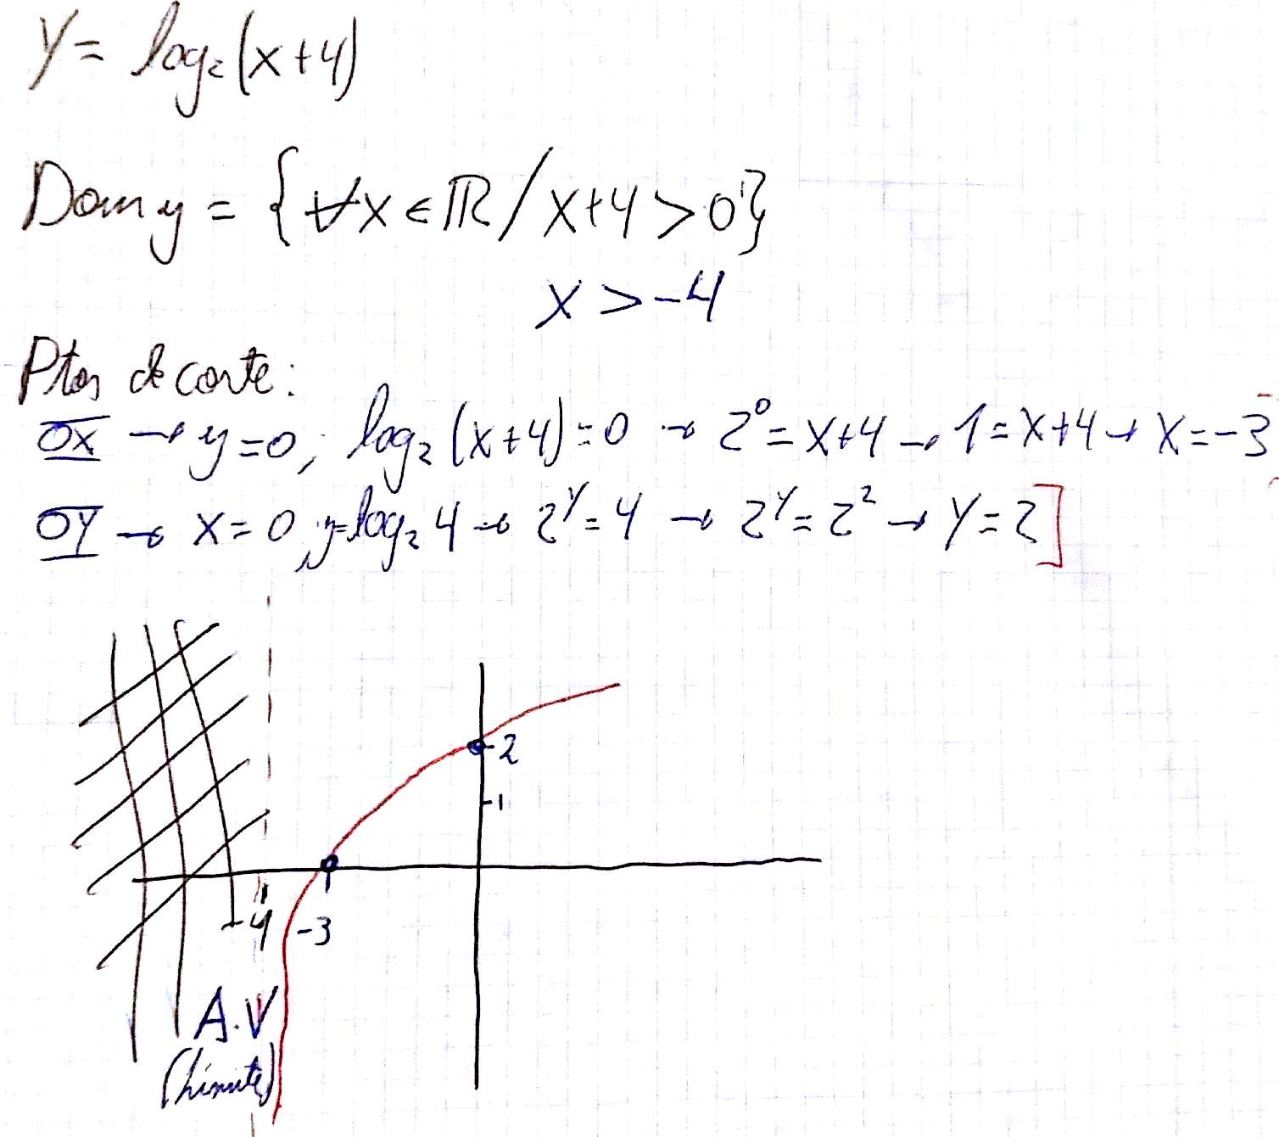 y = log₂(x+4)
Dom y = {∀x∈ℝ / x+4>0}
x > -4
Ptos de corte:
OX → y=0; log₂(x+4)=0 → 2⁰=x+4 → 1=x+4 → x=-3
OY → x=0; y=log₂4 → 2ʸ=4 → 2ʸ=2² → y=2]
2
1
-4 -3
A.V
(Límite)